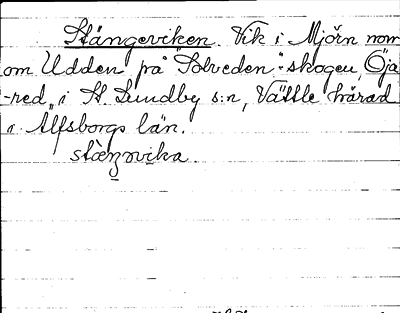 Stängeviken. Vik i Mjörn norr
om Udden på "Solveden"-skogen, Öja
-red, i St. Lundby s:n, Vättle härad
i Älfsborgs län.
stæŋvika.